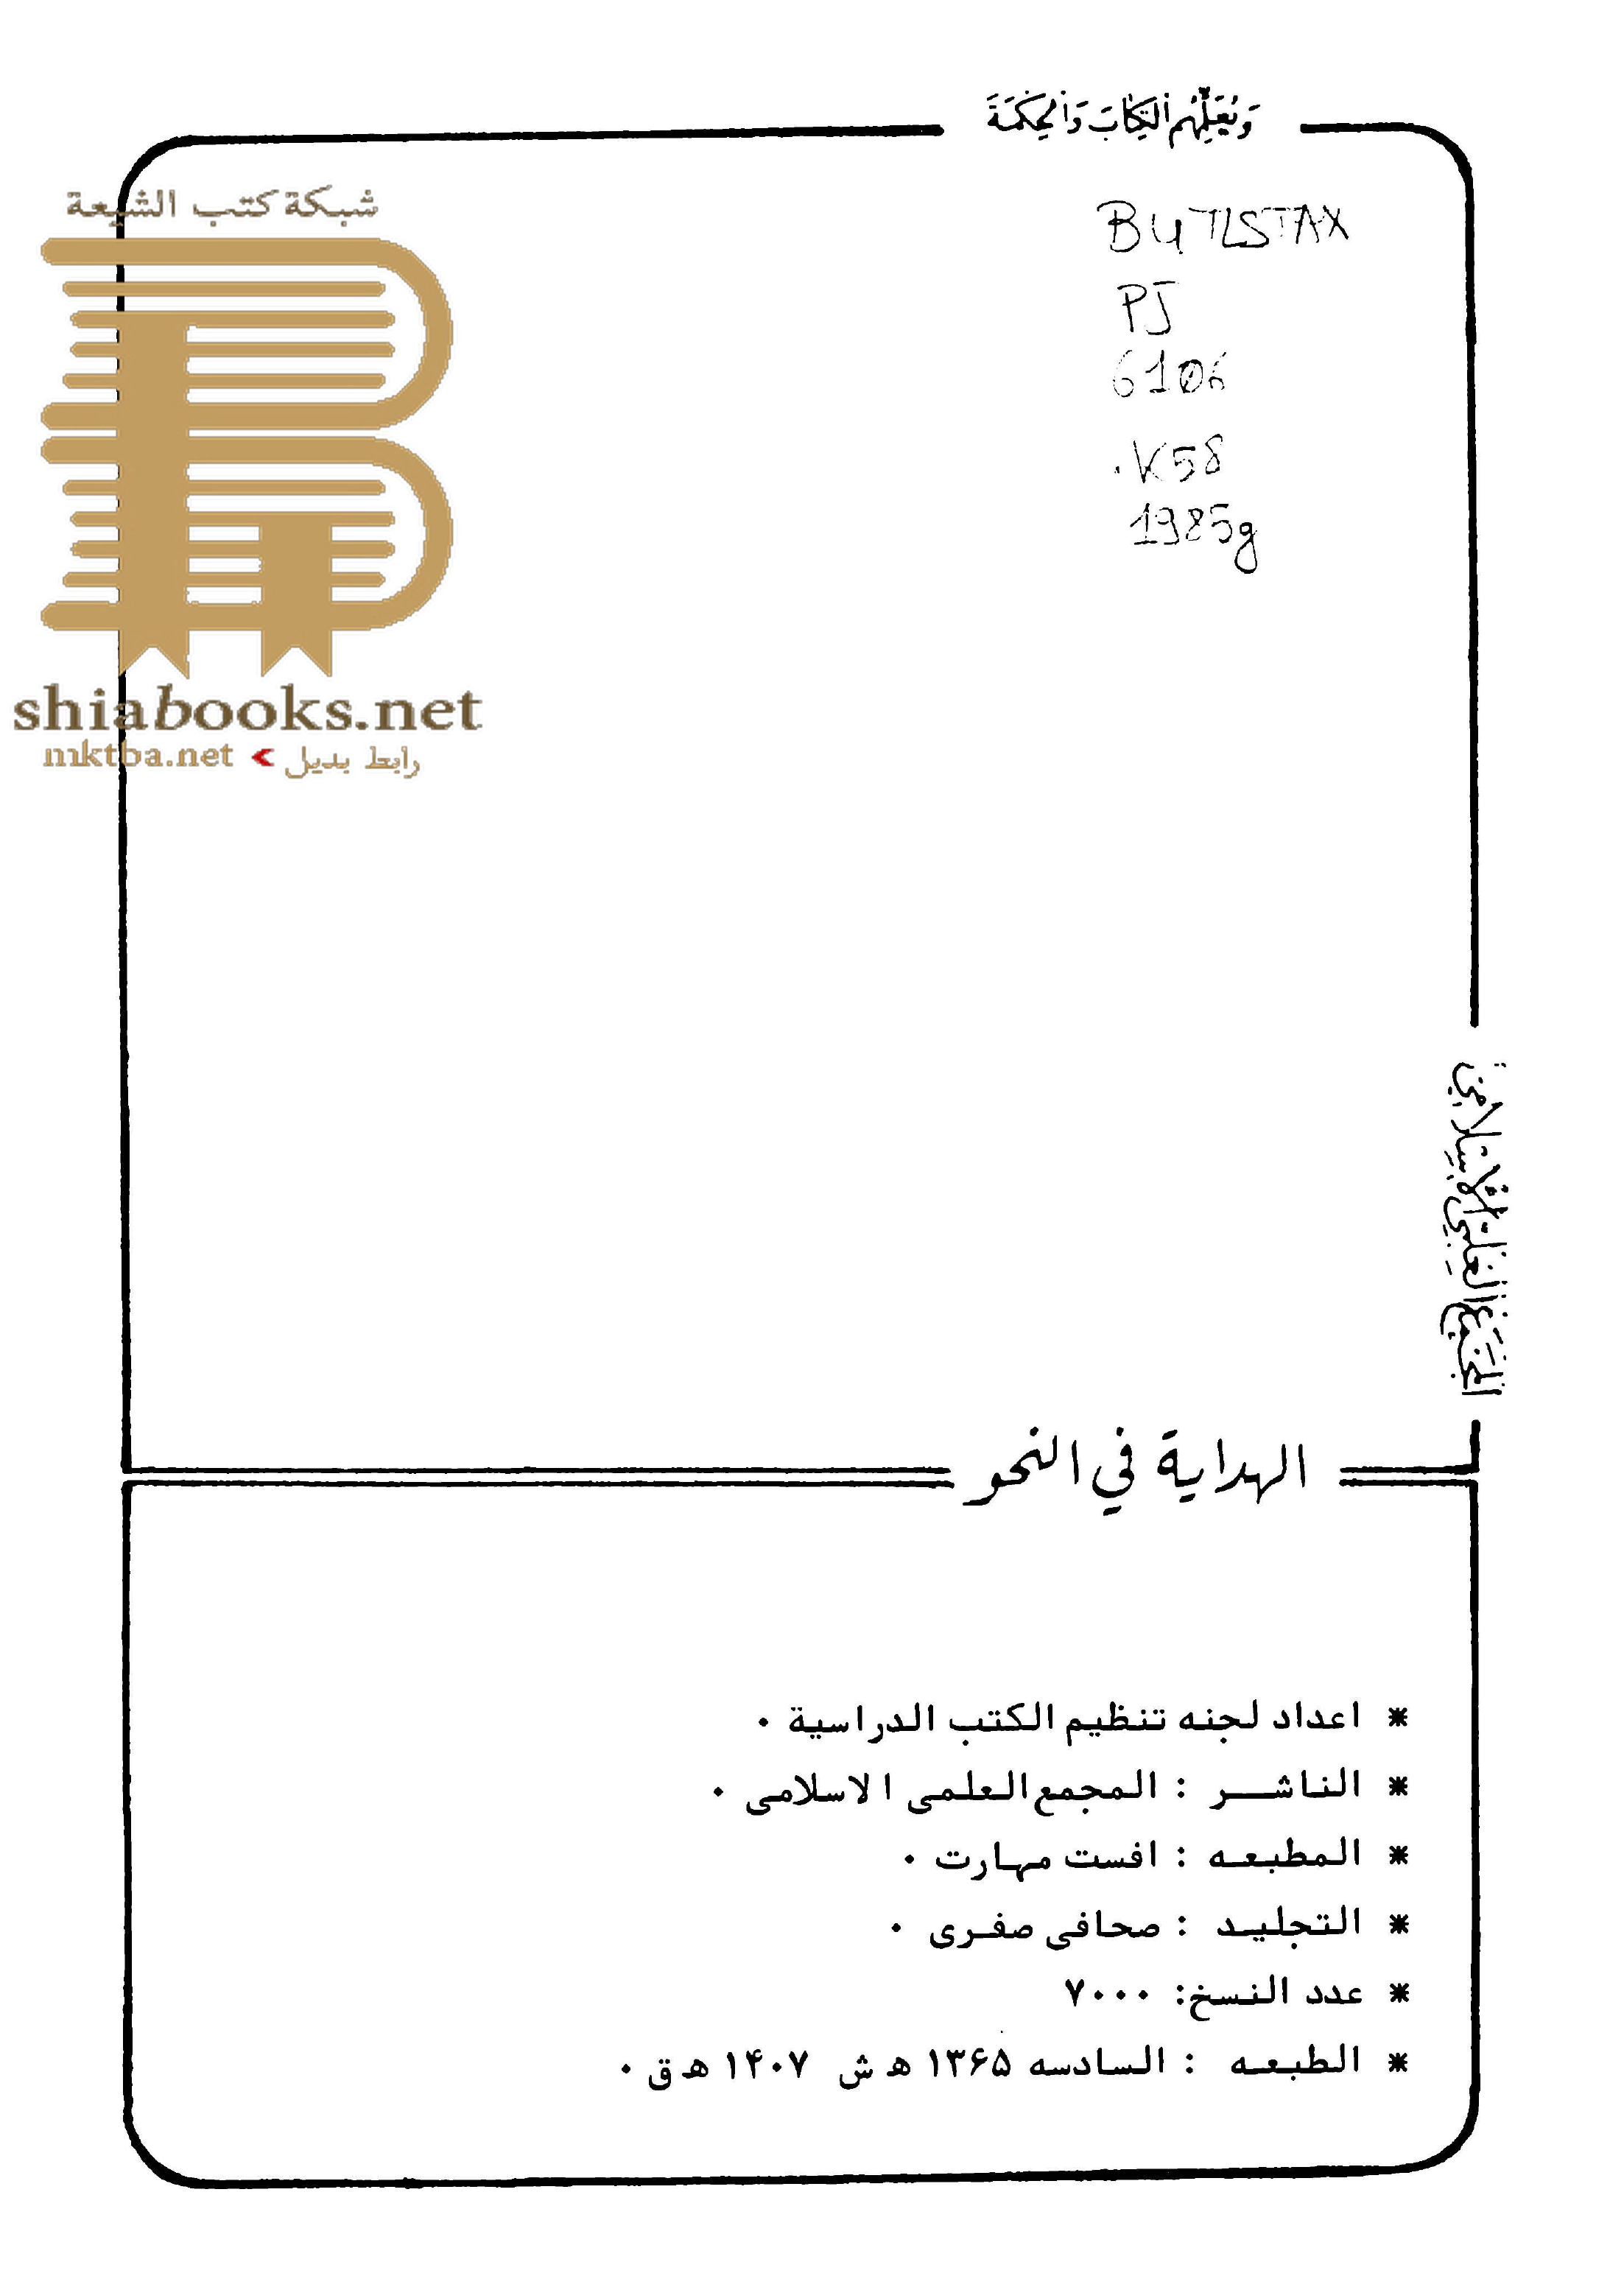 وَيُعَلِّمُهُمُ الْكِتَابَ وَالْحِكْمَةَ
شبكة كتب الشيعة
shiabooks.net
mktba.net < رابط بديل
BUTLSTAX
PJ
6106
.K58
1985g
المجمع العلمي الاسلامي
الهداية في النحو
* اعداد لجنه تنظيم الكتب الدراسية ٠
* الناشـــر : المجمع العلمی الاسلامی ٠
* المطبعـه : افست مهارت ٠
* التجليـد : صحافی صفـری ٠
* عدد النسخ: ۷۰۰۰
* الطبعـه : السادسه ۱۳۶۵ ه ش ۱۴۰۷ ه ق ٠